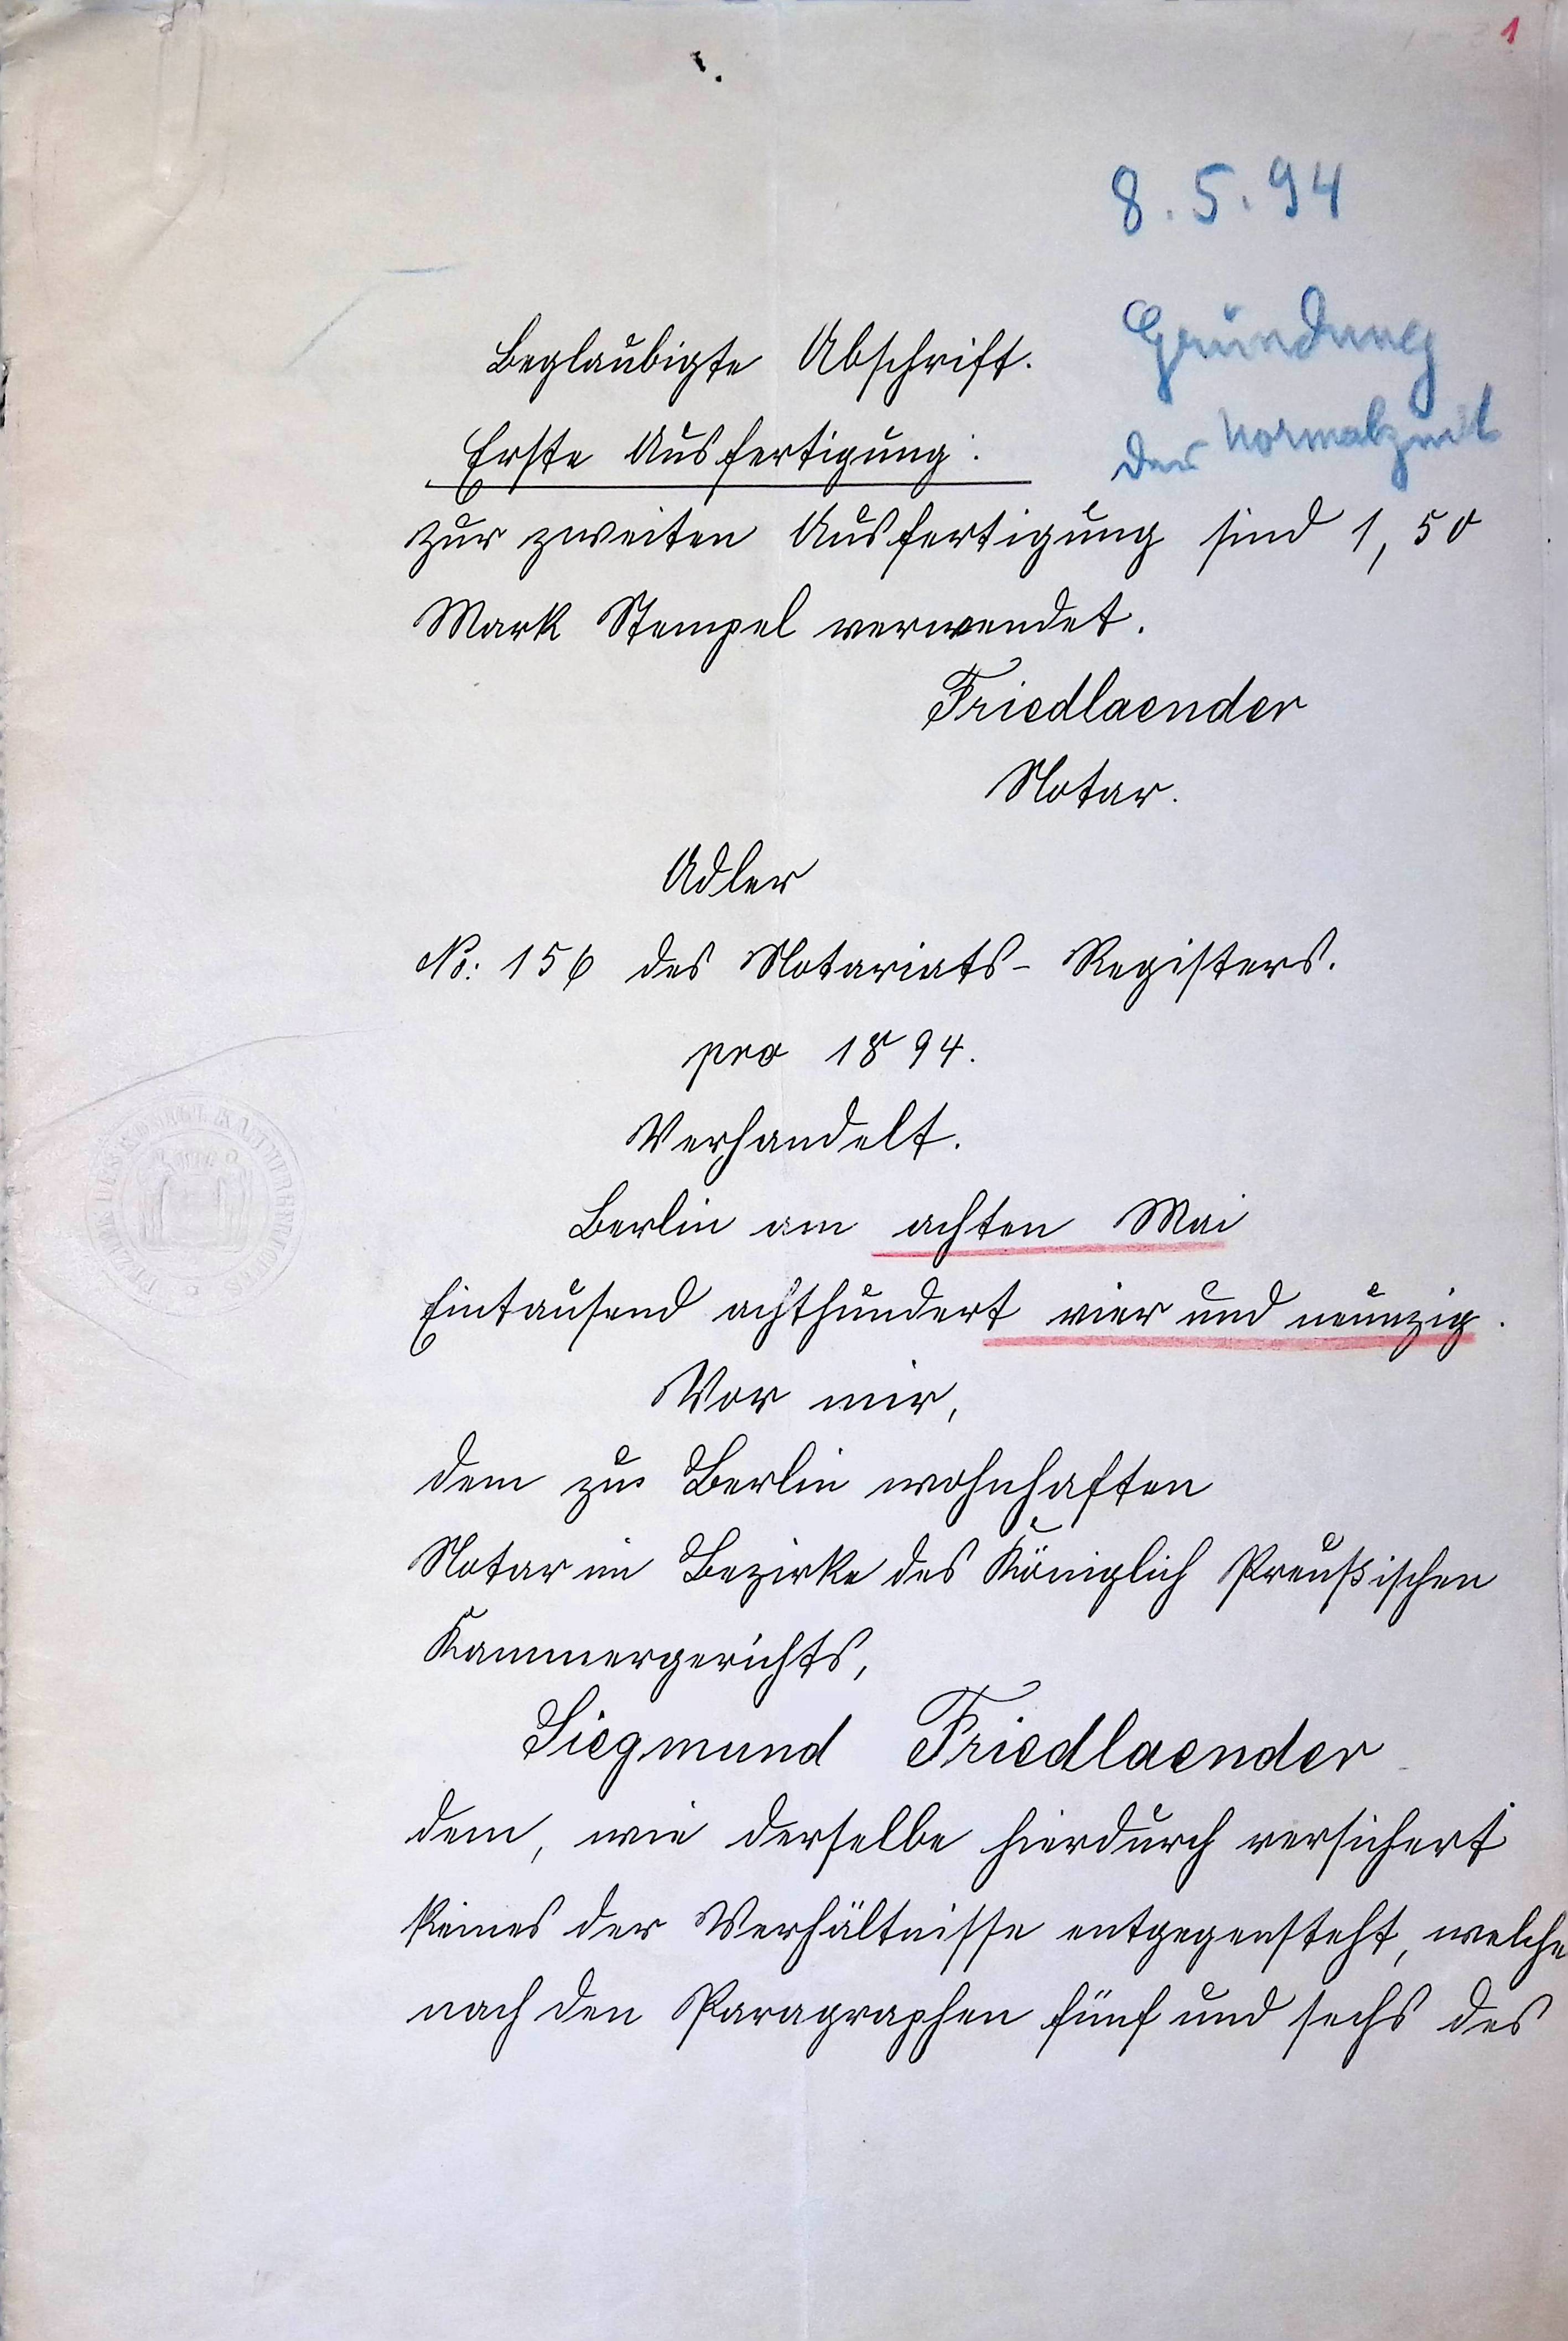 1
8.5.94
Gründung
der Normalzeit
Beglaubigte Abschrift.
Erste Ausfertigung:
zur zweiten Ausfertigung sind 1,50
Mark Stempel verwendet.
Friedlaender
Notar.
Adler
No: 156 des Notariats- Registers.
pro 1894.
Verhandelt.
Berlin am achten Mai
Eintausend achthundert vier und neunzig.
Vor mir,
dem zu Berlin wohnhaften
Notar im Bezirke des Königlich Preußischen
Kammergerichts,
Siegmund Friedlaender
dem, wie derselbe hierdurch versichert
keines der Verhältnisse entgegensteht, welche
nach den Paragraphen fünf und sechs des